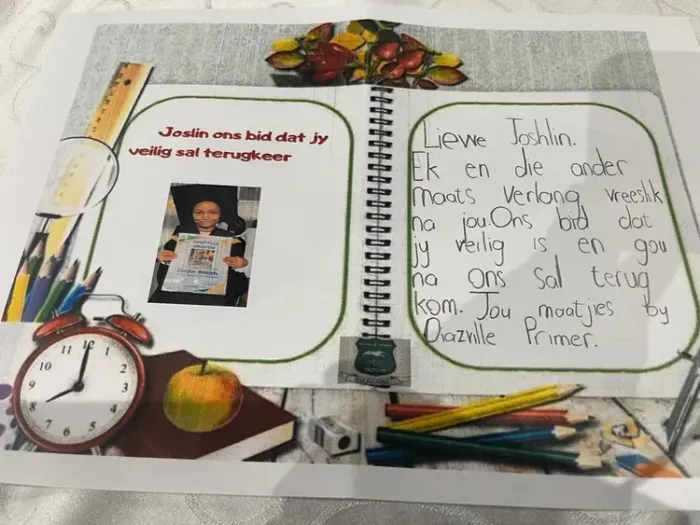 Joslin ons bid dat jy
veilig sal terugkeer
Liewe Joshlin.
Ek en die ander
maats verlang vreeslik
na jou. Ons bid dat
jy veilig is en gou
na ons sal terug
kom. Jou maatjies by
Diazville Primer.
11 12 1
10 2
9 3
8 4
7 6 5